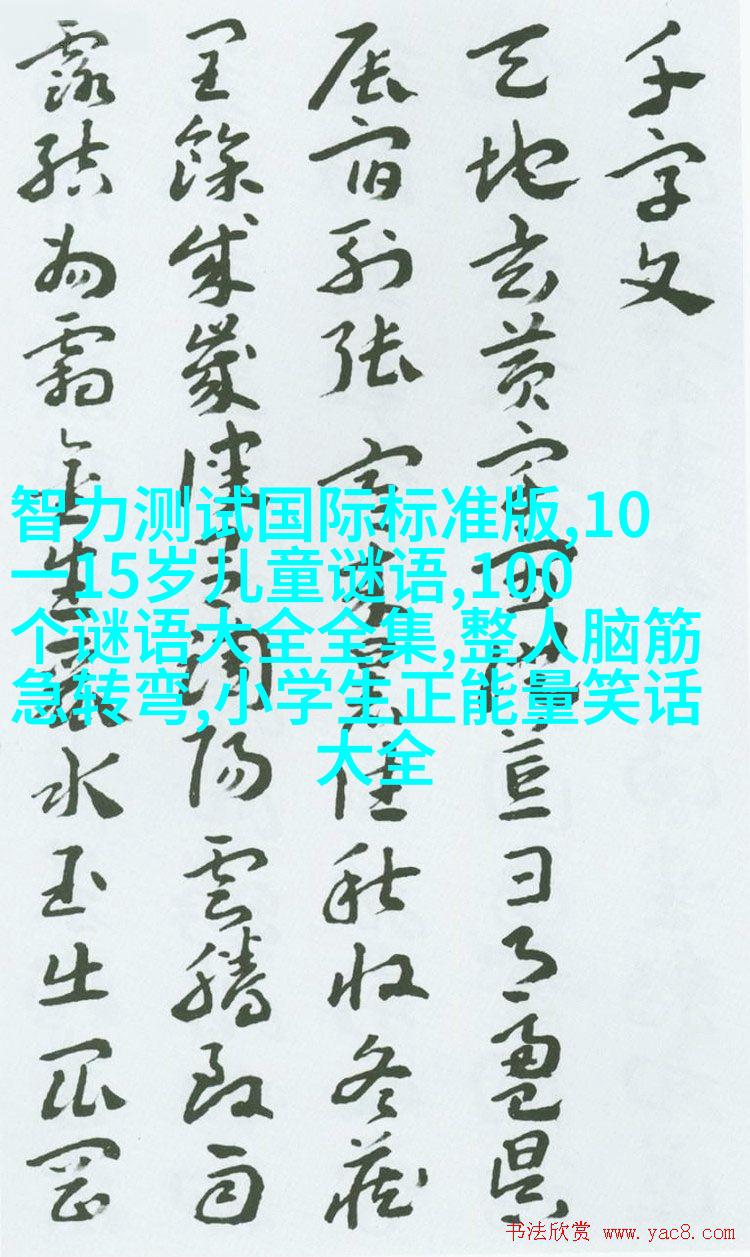 千字文
天地玄黄宇宙洪荒日月盈昃
辰宿列張寒來暑往秋收冬藏
閏餘成歲律吕調陽雲騰致雨
露結為霜金生麗水玉出崑岡
智力测试国际标准版,10
一15岁儿童谜语,100
个谜语大全全集,整人脑筋
急转弯,小学生正能量笑话
大全
书法欣赏 www.yac8.com